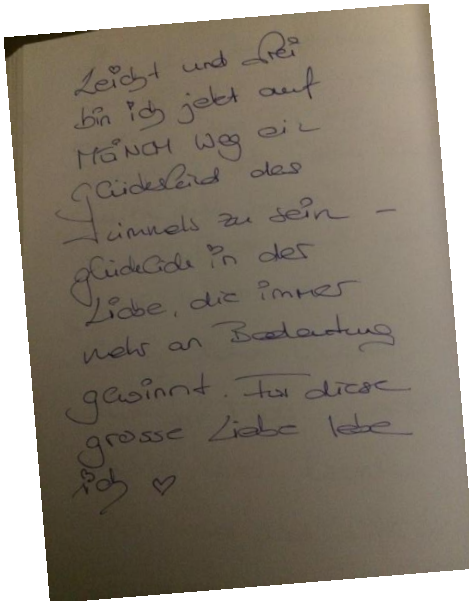 Leicht und frei
bin ich jetzt auf
MEINEM Weg ein
Glückskind des
Himmels zu sein -
glücklich in der
Liebe, die immer
mehr an Bedeutung
gewinnt. Für diese
grosse Liebe lebe
ich ♡